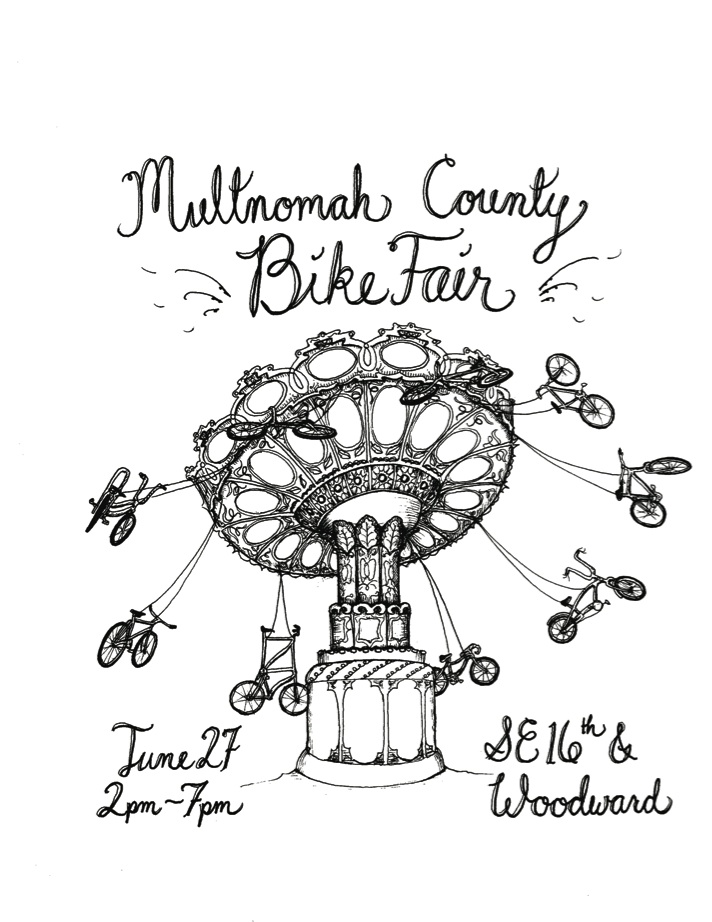 Multnomah County
Bike Fair
June 27
2pm~7pm
SE 16th &
Woodward